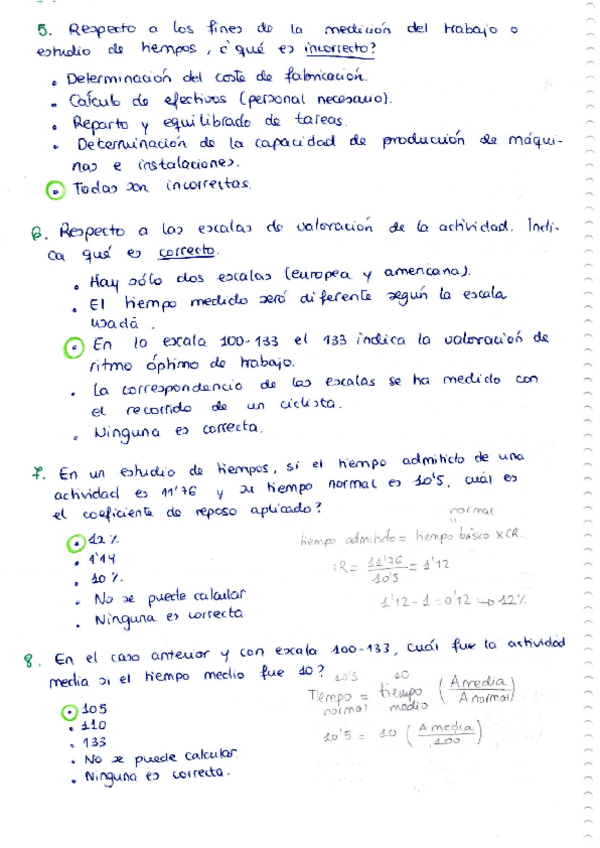 5. Respecto a los fines de la medición del trabajo o
estudio de tiempos, ¿qué es incorrecto?
• Determinación del coste de fabricación.
• Cálculo de efectivos (personal necesario).
• Reparto y equilibrado de tareas.
• Determinación de la capacidad de producción de máqui-
nas e instalaciones.
• Todas son incorrectas.
6. Respecto a las escalas de valoración de la actividad. Indi-
ca qué es correcto.
• Hay sólo dos escalas (europea y americana).
• El tiempo medido será diferente según la escala
usada.
• En la escala 100-133 el 133 indica la valoración de
ritmo óptimo de trabajo.
• La correspondencia de las escalas se ha medido con
el recorrido de un ciclista.
• Ninguna es correcta.
7. En un estudio de tiempos, si el tiempo admitido de una
actividad es 11'76 y su tiempo normal es 10'5, cuál es
el coeficiente de reposo aplicado?
normal
"
• 12%
tiempo admitido = tiempo básico x CR.
• 1'14
CR = 11'76 / 10'5 = 1'12
• 10%.
• No se puede calcular
1'12 - 1 = 0'12 → 12%
• Ninguna es correcta
8. En el caso anterior y con escala 100-133, cuál fue la actividad
media si el tiempo medio fue 10?
10'5 10
Tiempo normal = tiempo medio (A media / A normal)
• 105
• 110
10'5 = 10 (A media / 100)
• 133
• No se puede calcular
• Ninguna es correcta.